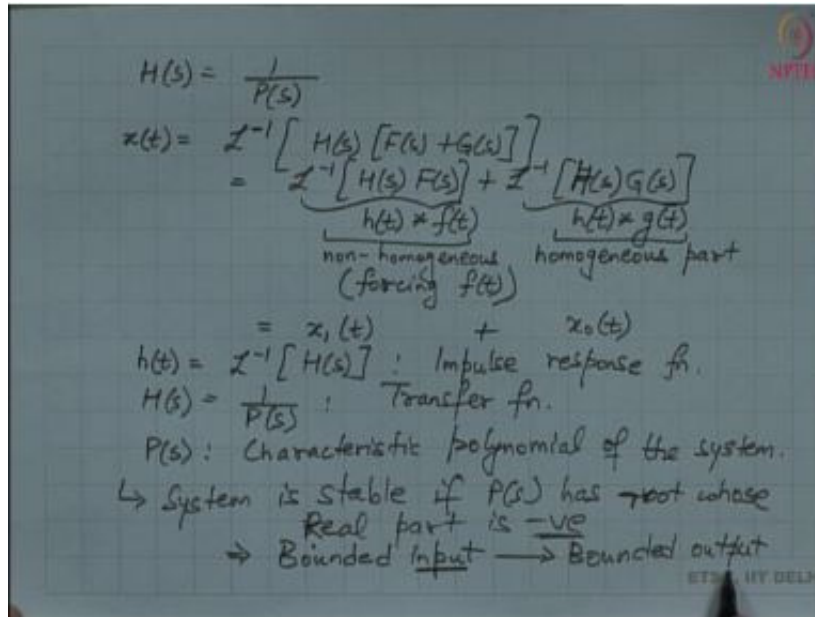 H(s) = 1/P(s)
NPTEL
x(t) = ℒ⁻¹[H(s)[F(s)+G(s)]]
= ℒ⁻¹[H(s)F(s)] + ℒ⁻¹[H(s)G(s)]
h(t) * f(t) h(t) * g(t)
non-homogeneous homogeneous part
(forcing f(t))
= x₁(t) + x₀(t)
h(t) = ℒ⁻¹[H(s)] : Impulse response fn.
H(s) = 1/P(s) : Transfer fn.
P(s) : Characteristic polynomial of the system.
↳ System is stable if P(s) has root whose
Real part is -ve
⇒ Bounded input → Bounded output
IIT DELH